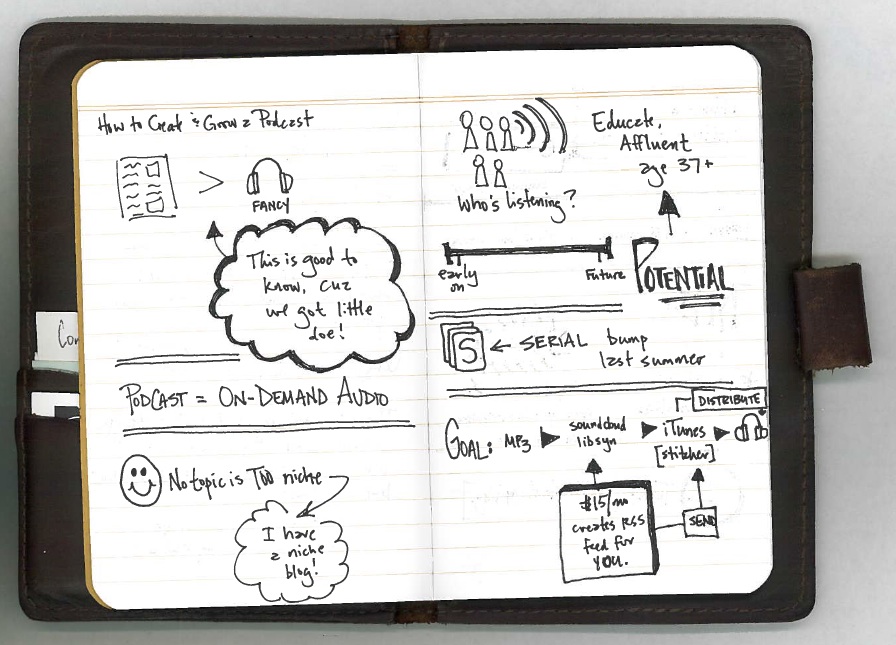 How to Create & Grow a Podcast
>
FANCY
This is good to
know, cuz
we got little
doe!
PODCAST = ON-DEMAND AUDIO
No topic is Too niche
I have
a niche
blog!
Con
Who's listening?
Educate,
Affluent
age 37+
early
on
Future
POTENTIAL
S ← SERIAL bump
last summer
DISTRIBUTE
GOAL: MP3
soundcloud
libsyn
iTunes
[stitcher]
$15/mo
creates RSS
feed for
YOU.
SEND